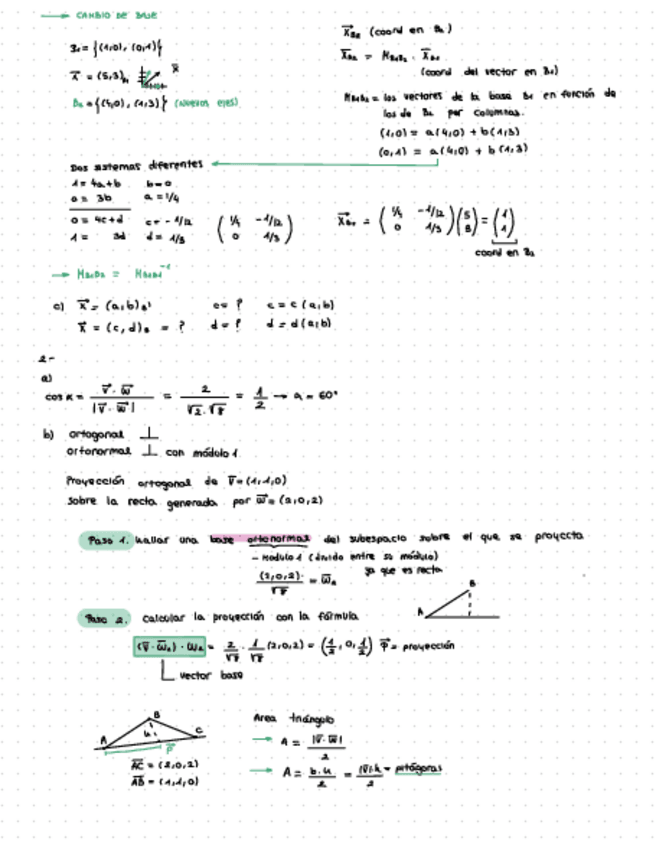 → CAMBIO DE BASE
B₁ = {(1,0), (0,1)}
x⃗ = (5,3) x⃗
B₂ = {(4,0), (1,3)} (nuevos ejes)
x⃗B₂ (coord en B₂)
x⃗B₂ = MB₁B₂ · x⃗B₁
(coord del vector en B₁)
MB₁B₂ = los vectores de la base B₁ en función de
los de B₂ por columnas.
(1,0) = a(4,0) + b(1,3)
(0,1) = a(4,0) + b(1,3)
Dos sistemas diferentes
1 = 4a+b b=0
0 = 3b a = 1/4
0 = 4c+d c = -1/12
1 = 3d d = 1/3
(1/4 -1/12
0 1/3)
x⃗ = (1/4 -1/12
0 1/3) (5
3) = (1
1)
coord en B₂
c) x⃗ = (a,b)B'
c = ? c = c(a,b)
x⃗ = (c,d)B = ? d = ? d = d(a,b)
2-
a)
cos α = v⃗ · w⃗ / |v⃗ · w⃗| = 2 / √2 · √8 = 1/2 → α = 60°
b) ortogonal ⊥
ortonormal ⊥ con módulo 1
Proyección ortogonal de v̄ = (1,1,0)
sobre la recta generada por w̄ = (2,0,2)
Paso 1. Hallar una base ortonormal del subespacio sobre el que se proyecta
- Módulo 1 (divido entre su módulo)
(2,0,2) / √8 = w̄ ya que es recta
B
A
Paso 2. calcular la proyección con la fórmula
= 2/√8 · 1/√8 (2,0,2) = (1/2, 0, 1/2) p⃗ = proyección
vector base
B
A h C
p⃗
AC = (2,0,2)
AB = (1,1,0)
Area triángulo
→ A = |v̄ · w̄| / 2
→ A = b·h / 2 = pitágoras